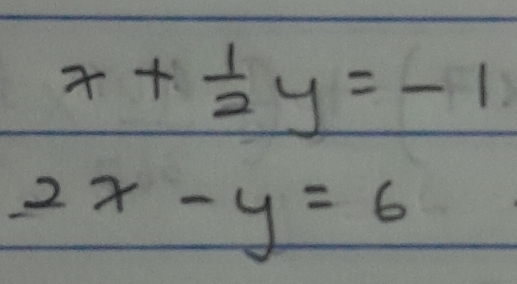 x + 1/2 y = - 1
2x - y = 6